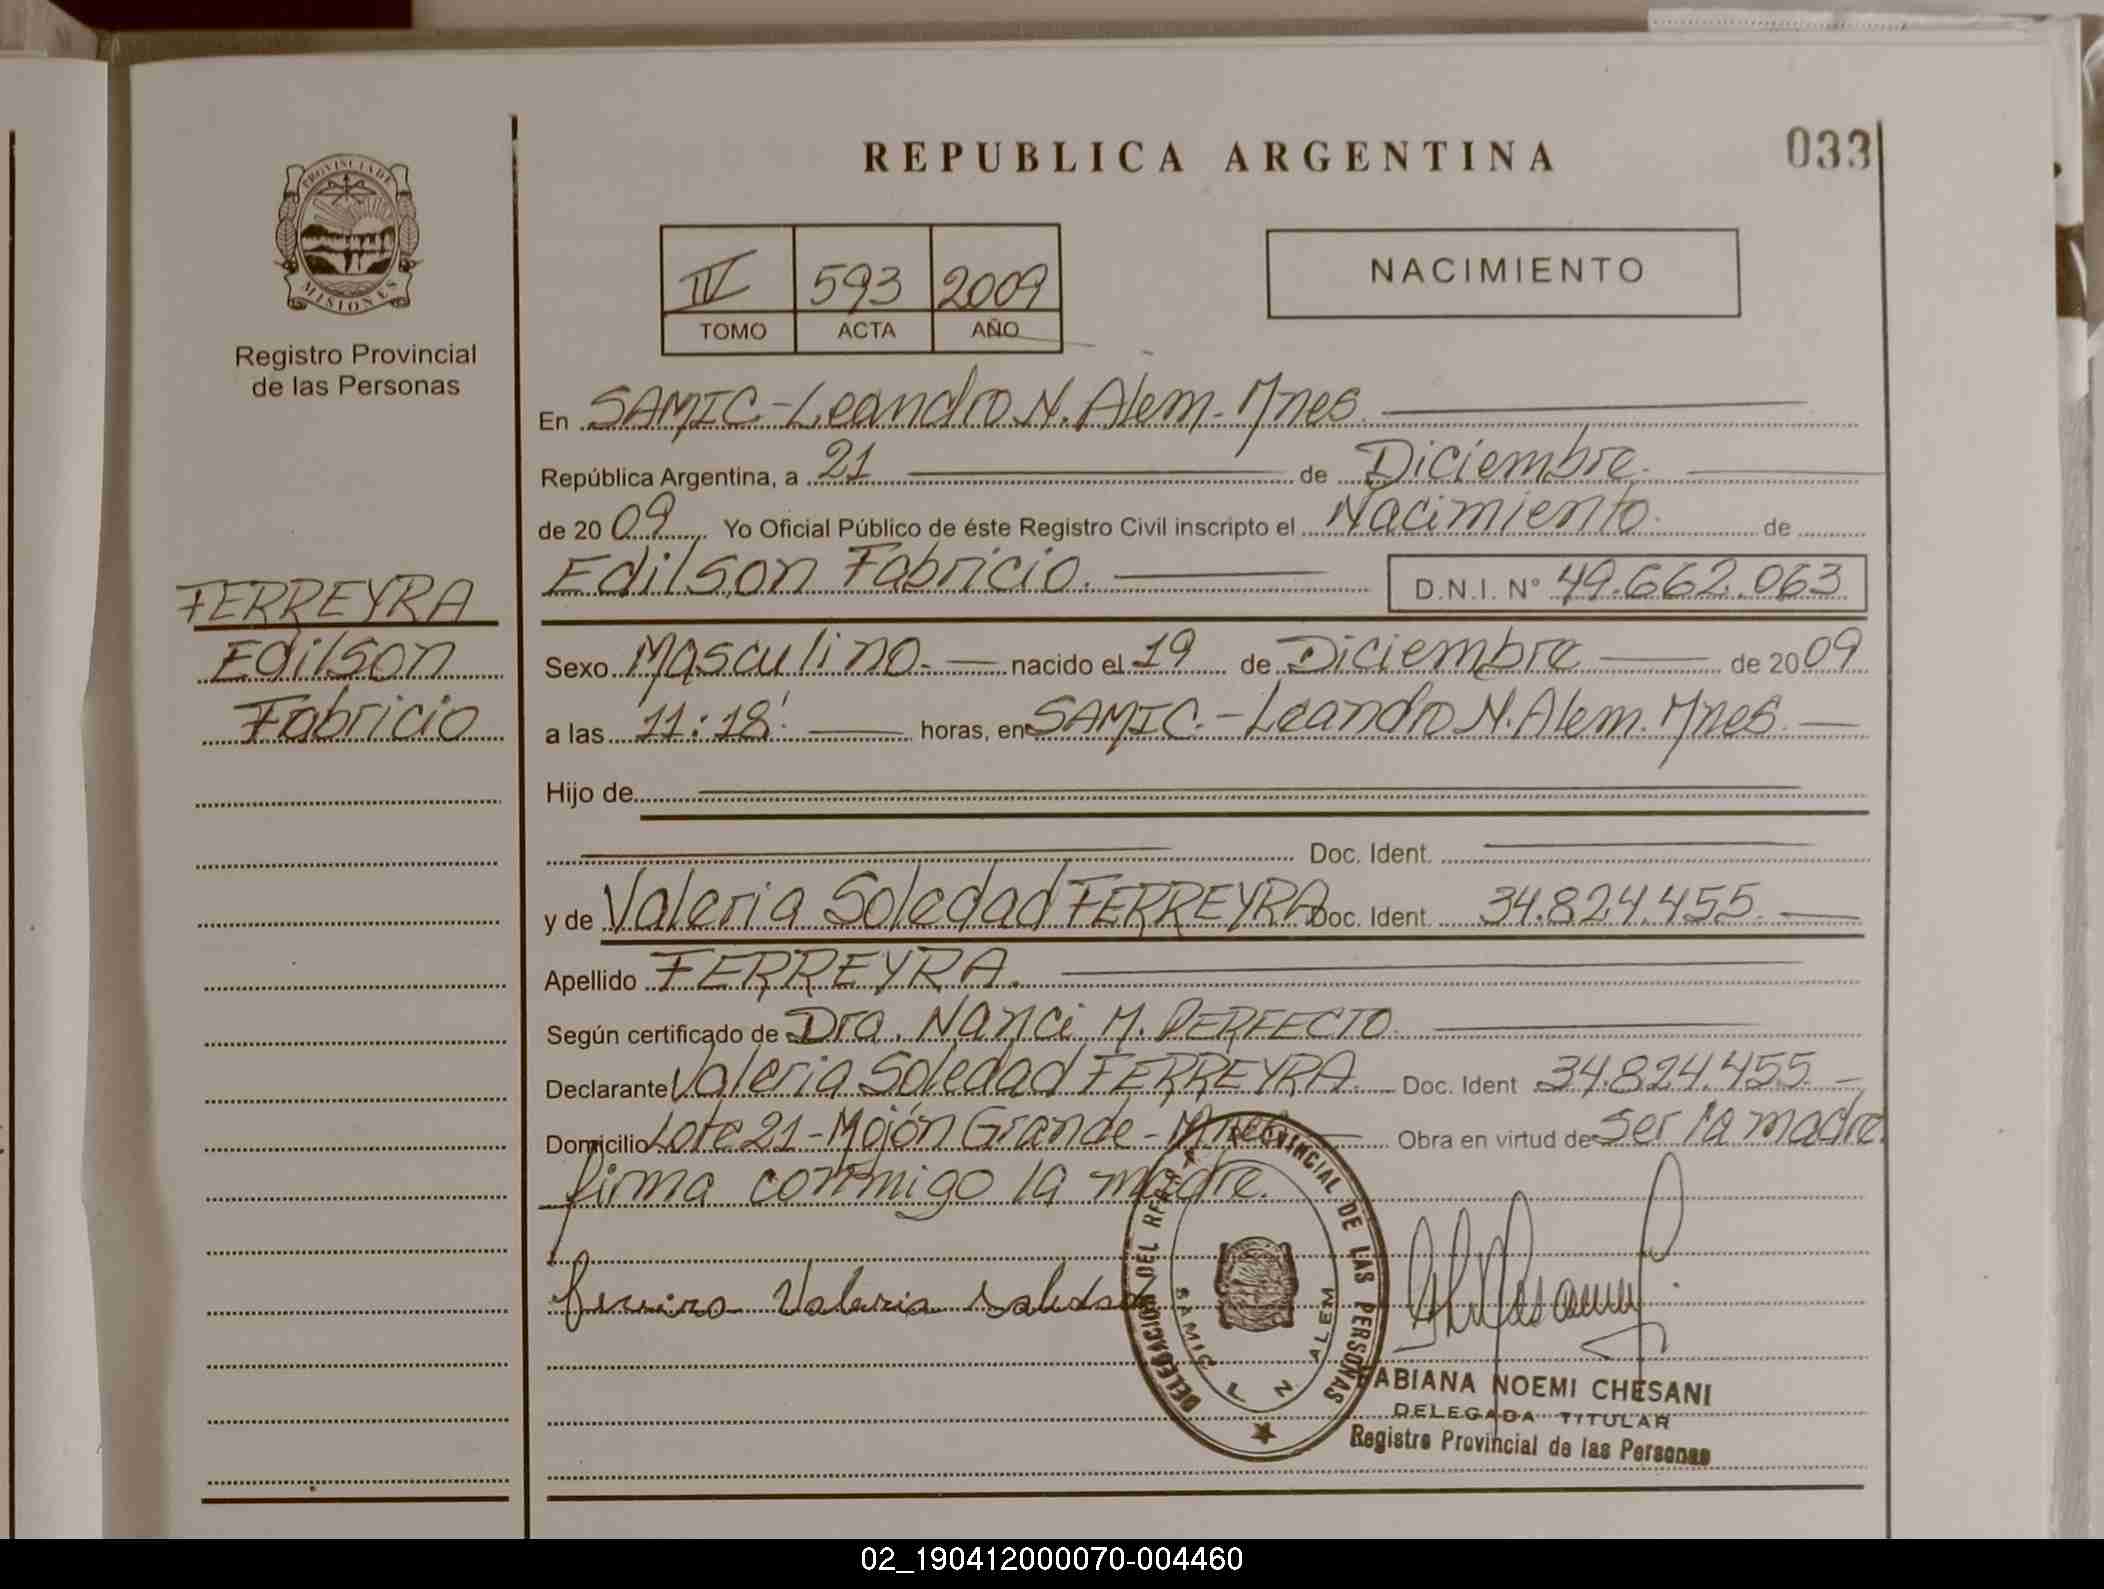 REPUBLICA ARGENTINA
033
PROVINCIA DE
MISIONES
Registro Provincial
de las Personas
IV 593 2009
TOMO ACTA AÑO
NACIMIENTO
En SAMIC-Leandro N. Alem. Mnes.
República Argentina, a 21 de Diciembre.
de 2009 Yo Oficial Público de éste Registro Civil inscripto el Nacimiento. de
Edilson Fabricio. D.N.I. N° 49.662.063
FERREYRA
Edilson
Fabricio
Sexo Masculino. nacido el 19 de Diciembre de 2009
a las 11:18' horas, en SAMIC.-Leandro N. Alem. Mnes.
Hijo de
Doc. Ident.
y de Valeria Soledad FERREYRA Doc. Ident. 34.824.455.
Apellido FERREYRA.
Según certificado de Dra. Nanci M. PERFECTO.
Declarante Valeria Soledad FERREYRA. Doc. Ident 34.824.455.
Domicilio Lote 21-Mojón Grande-Mnes Obra en virtud de ser la madre.
firma conmigo la madre.
Valeria
DELEGACION DEL REG PROVINCIAL DE LAS PERSONAS
SAMIC L N ALEM
FABIANA NOEMI CHESANI
DELEGADA TITULAR
Registro Provincial de las Personas
02_190412000070-004460